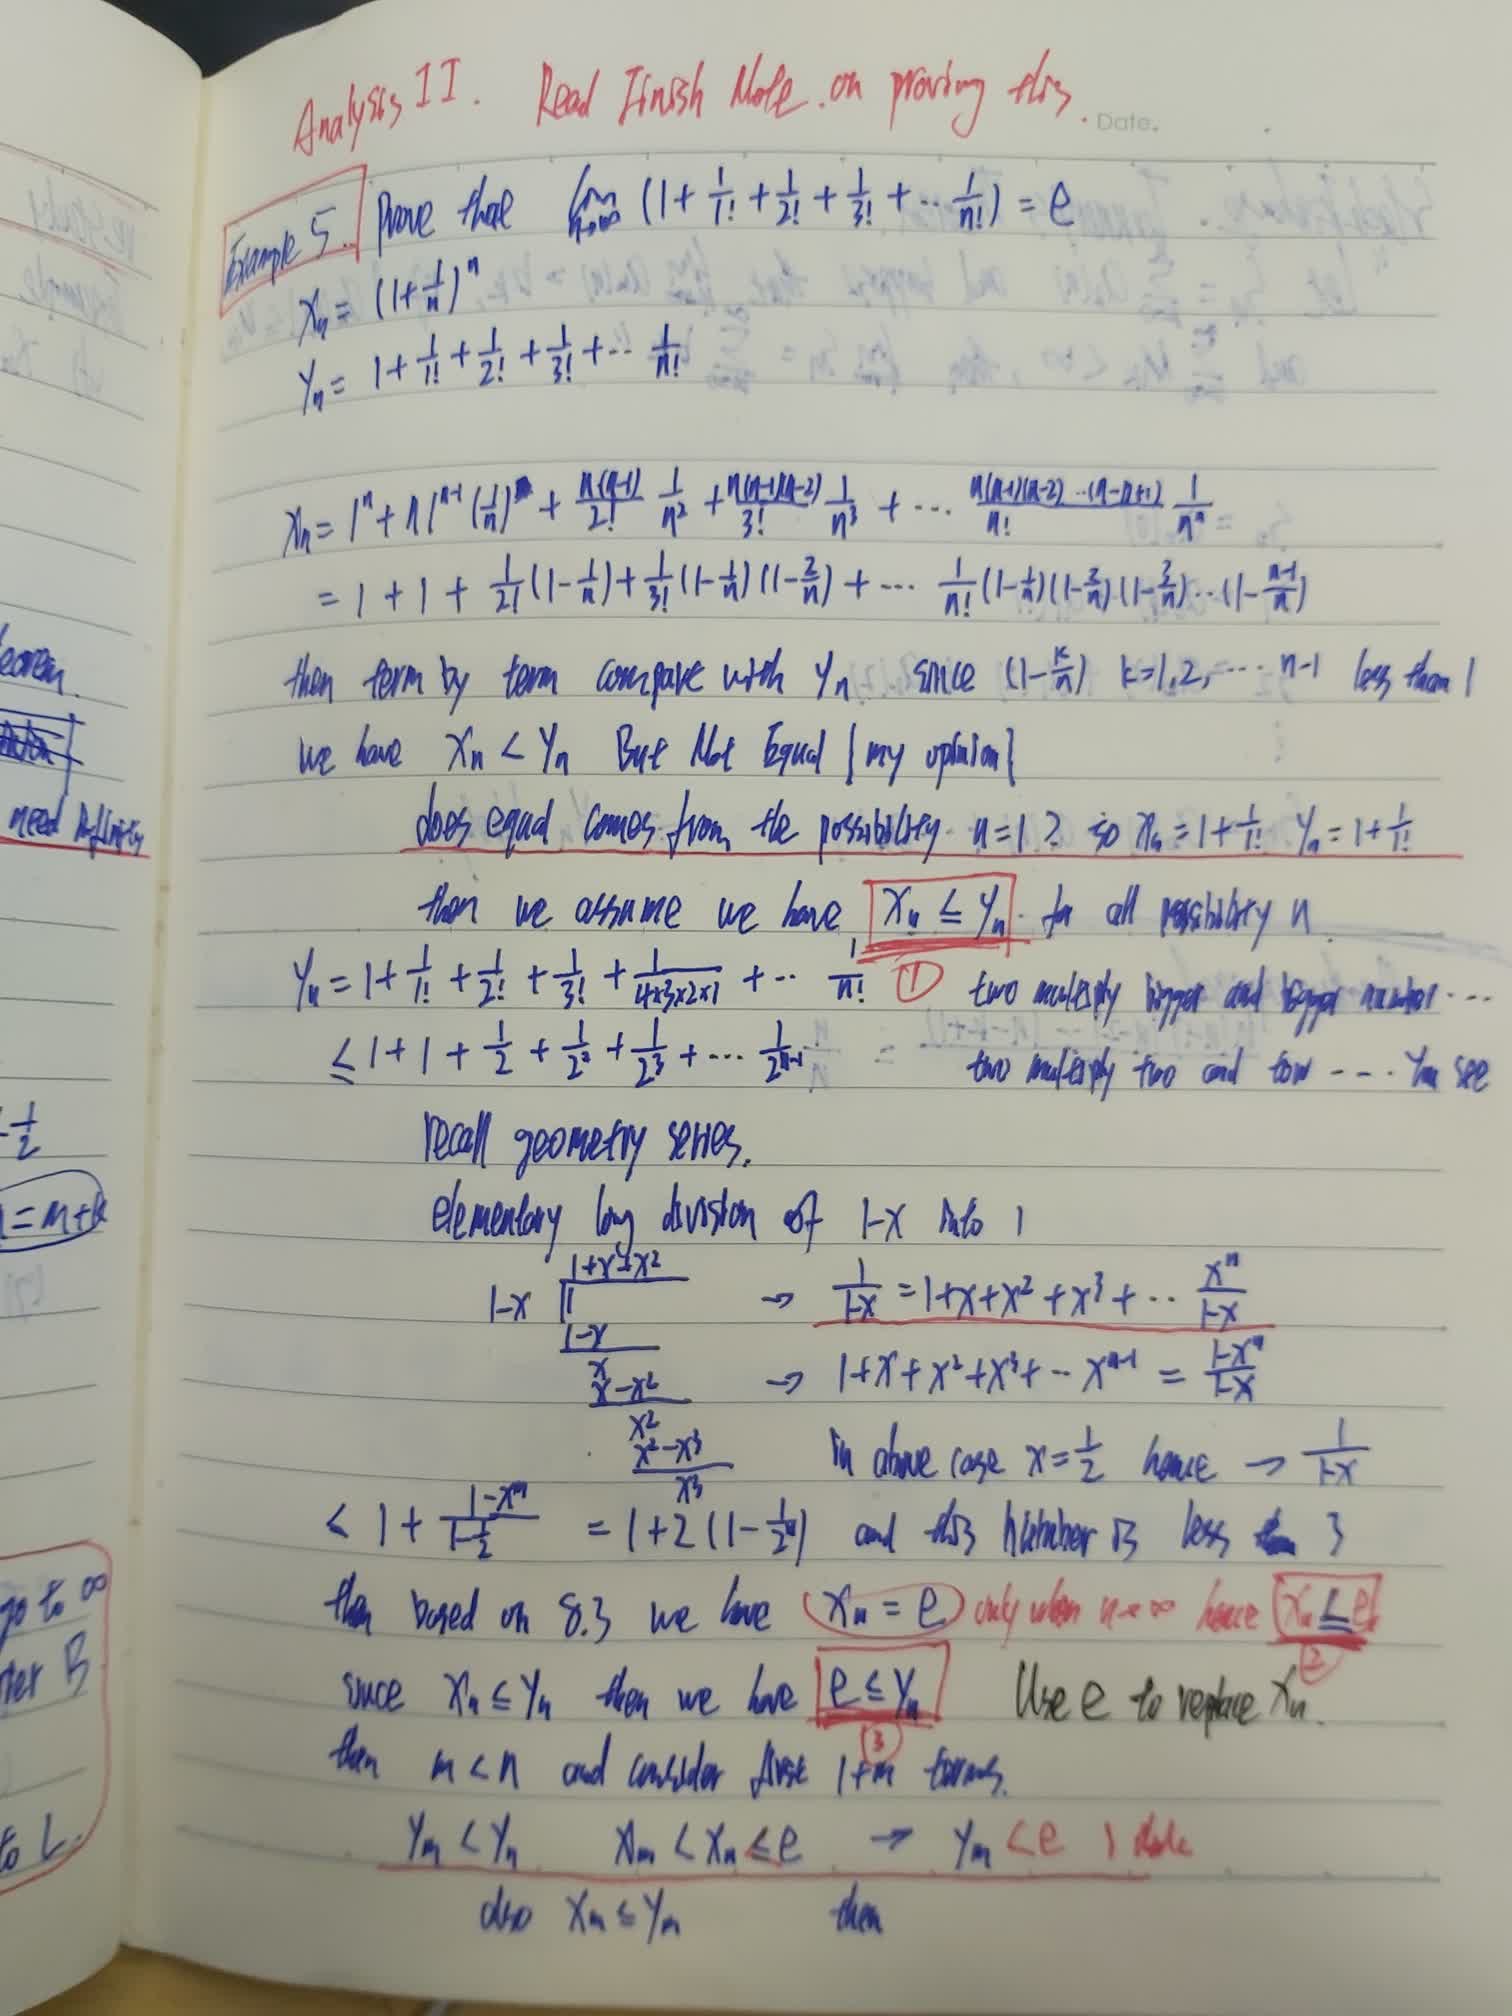 Analysis II. Read Finish Note. on proving this.
Date.
Example 5. Prove that lim n→∞ (1 + 1/1! + 1/2! + 1/3! + ... 1/n!) = e
Xn = (1+1/n)^n
Yn = 1 + 1/1! + 1/2! + 1/3! + ... 1/n!
Xn = 1^n + n1^(n-1)(1/n) + n(n-1)/2! 1/n^2 + n(n-1)(n-2)/3! 1/n^3 + ... n(n-1)(n-2)...(n-n+1)/n! 1/n^n
= 1 + 1 + 1/2!(1-1/n) + 1/3!(1-1/n)(1-2/n) + ... 1/n!(1-1/n)(1-2/n)(1-3/n)...(1-(n-1)/n)
then term by term compare with Yn since (1-k/n) k=1,2,... n-1 less than 1
we have Xn < Yn But Not Equal [my opinion]
does equal comes from the possibility n=1? so Xn = 1+1/1! Yn = 1+1/1!
then we assume we have Xn ≤ Yn. for all possibility n.
Yn = 1 + 1/1! + 1/2! + 1/3! + 1/(4×3×2×1) + ... 1/n! ① two multiply bigger and bigger number ...
≤ 1 + 1 + 1/2 + 1/2^2 + 1/2^3 + ... 1/2^(n-1) two multiply two and tow .... You see
recall geometry series.
elementary long division of 1-x into 1
1+x+x^2
1-x 1 → 1/(1-x) = 1+x+x^2+x^3+... x^n/(1-x)
1-x
x
x-x^2 → 1+x+x^2+x^3+-- x^(n-1) = (1-x^n)/(1-x)
x^2
x^2-x^3 in above case x=1/2 hence → 1/(1-x)
x^3
< 1 + (1-x^n)/(1-1/2) = 1+2(1-1/2^n) and this number is less than 3
then based on 8.3 we have Xn = e only when n→∞ hence Xn ≤ e ②
since Xn ≤ Yn then we have e ≤ Yn ③ Use e to replace Xn.
then m<n and consider first 1+m terms.
Ym < Yn Xm < Xn ≤ e → Ym < e
also Xn ≤ Yn then
= m+k
go to ∞
to L.